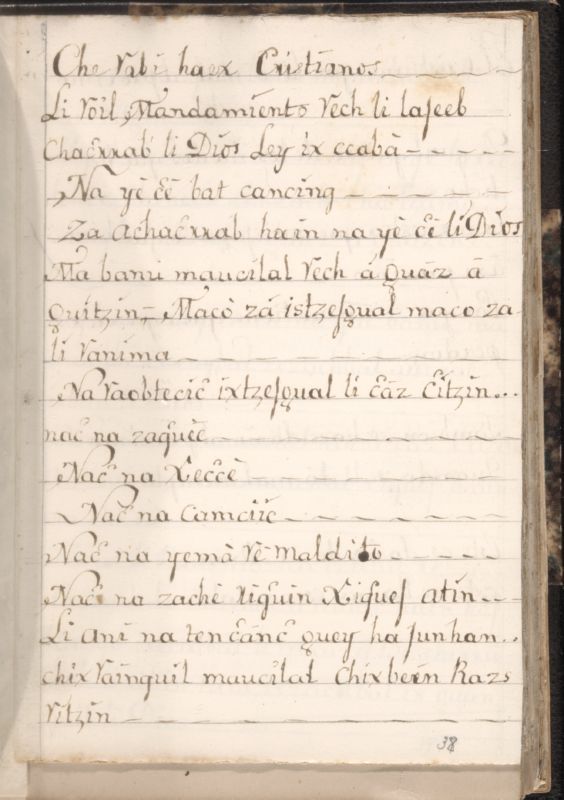 Che vabi haex Cristianos
Li voil Mandamiento vech li laſeeb
Chac̃rrab li Dios Ley ix ccabà
Na yè c̃ê bat cancing
Za achac̃rrab hain na yè c̃ê li Dios
Ma banu maucilal vech á quáz â
quitzin, Macò zá istzeſqual maco za-
li vanima
Na raobtecic̃ ixtzeſqual li c̃áz c̃itzin...
nac̃ na zaq̃uèc̃
Nac̃ na xec̃c̃è
Nac̃ na camciic̃
Nac̃ na yemà rè maldito
Nac̃ na zachè riq̃uin xiq̃ueſ atin
Li ani na ten c̃ánc̃ quey ha ſunhan..
chix vainquil maucilal chixbeen Razs
vitzin
38